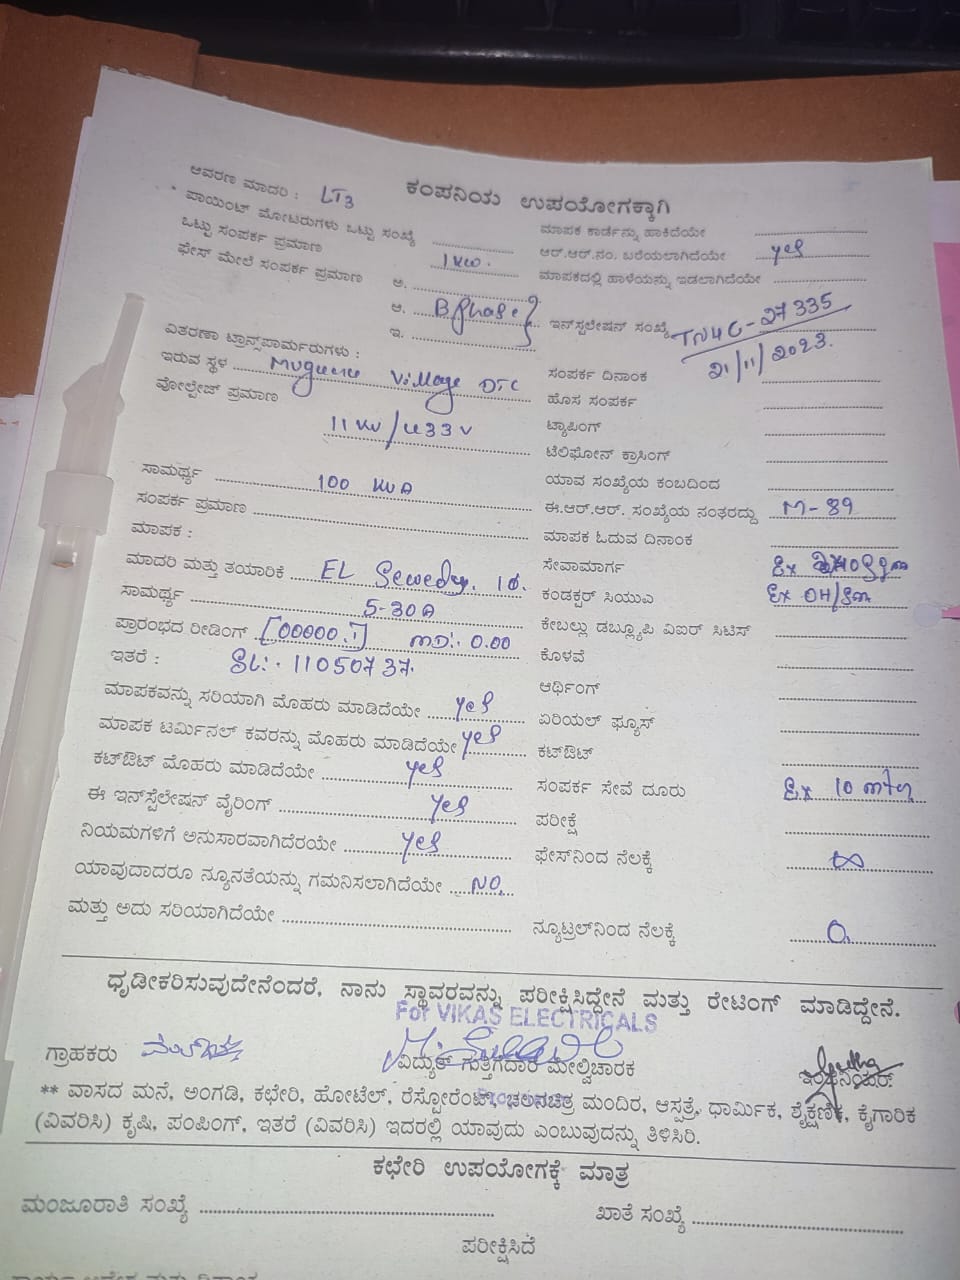 ಕಂಪನಿಯ ಉಪಯೋಗಕ್ಕಾಗಿ
ಆವರಣ ಮಾದರಿ : LT3
ಪಾಯಿಂಟ್ ಮೋಟರುಗಳು ಒಟ್ಟು ಸಂಖ್ಯೆ
ಒಟ್ಟು ಸಂಪರ್ಕ ಪ್ರಮಾಣ 1 KW.
ಫೇಸ್ ಮೇಲೆ ಸಂಪರ್ಕ ಪ್ರಮಾಣ ಅ.
ಆ. B phase
ಇ.
ವಿತರಣಾ ಟ್ರಾನ್ಸ್‌ಪಾರ್ಮರುಗಳು :
ಇರುವ ಸ್ಥಳ Village DTC
ವೋಲ್ಟೇಜ್ ಪ್ರಮಾಣ
11 KV / 433 V
ಸಾಮರ್ಥ್ಯ 100 KVA
ಸಂಪರ್ಕ ಪ್ರಮಾಣ
ಮಾಪಕ :
ಮಾದರಿ ಮತ್ತು ತಯಾರಿಕೆ EL Sewedy.
ಸಾಮರ್ಥ್ಯ 5-30A
ಪ್ರಾರಂಭದ ರೀಡಿಂಗ್ [00000.1] MD:. 0.00
ಇತರೆ : SL:. 11050737.
ಮಾಪಕವನ್ನು ಸರಿಯಾಗಿ ಮೊಹರು ಮಾಡಿದೆಯೇ yes
ಮಾಪಕ ಟರ್ಮಿನಲ್ ಕವರನ್ನು ಮೊಹರು ಮಾಡಿದೆಯೇ yes
ಕಟ್‌ಔಟ್ ಮೊಹರು ಮಾಡಿದೆಯೇ yes
ಈ ಇನ್‌ಸ್ಟೆಲೇಷನ್ ವೈರಿಂಗ್ yes
ನಿಯಮಗಳಿಗೆ ಅನುಸಾರವಾಗಿದೆರಯೇ yes
ಯಾವುದಾದರೂ ನ್ಯೂನತೆಯನ್ನು ಗಮನಿಸಲಾಗಿದೆಯೇ NO
ಮತ್ತು ಅದು ಸರಿಯಾಗಿದೆಯೇ
ಮಾಪಕ ಕಾರ್ಡನ್ನು ಹಾಕಿದೆಯೇ
ಆರ್.ಆರ್.ನಂ. ಬರೆಯಲಾಗಿದೆಯೇ yes
ಮಾಪಕದಲ್ಲಿ ಹಾಳೆಯನ್ನು ಇಡಲಾಗಿದೆಯೇ
ಇನ್‌ಸ್ಟಲೇಷನ್ ಸಂಖ್ಯೆ TN4C-27335
21/11/2023.
ಸಂಪರ್ಕ ದಿನಾಂಕ
ಹೊಸ ಸಂಪರ್ಕ
ಟ್ಯಾಪಿಂಗ್
ಟೆಲಿಫೋನ್ ಕ್ರಾಸಿಂಗ್
ಯಾವ ಸಂಖ್ಯೆಯ ಕಂಬದಿಂದ
ಈ.ಆರ್.ಆರ್. ಸಂಖ್ಯೆಯ ನಂತರದ್ದು M-89
ಮಾಪಕ ಓದುವ ದಿನಾಂಕ
ಸೇವಾಮಾರ್ಗ Ex
ಕಂಡಕ್ಟರ್ ಸಿಯುವ Ex OH/sm
ಕೇಬಲ್ಲು ಡಬ್ಲ್ಯೂಪಿ ವಿಐರ್ ಸಿಟಿಸ್
ಕೊಳವೆ
ಆರ್ಥಿಂಗ್
ಏರಿಯಲ್ ಫ್ಯೂಸ್
ಕಟ್‌ಔಟ್
ಸಂಪರ್ಕ ಸೇವೆ ದೂರು Ex 10 mtr
ಪರೀಕ್ಷೆ
ಫೇಸ್‌ನಿಂದ ನೆಲಕ್ಕೆ ∞
ನ್ಯೂಟ್ರಲ್‌ನಿಂದ ನೆಲಕ್ಕೆ 0
ಧೃಡೀಕರಿಸುವುದೇನೆಂದರೆ, ನಾನು ಸ್ಥಾವರವನ್ನು ಪರೀಕ್ಷಿಸಿದ್ದೇನೆ ಮತ್ತು ರೇಟಿಂಗ್ ಮಾಡಿದ್ದೇನೆ.
For VIKAS ELECTRICALS
ಗ್ರಾಹಕರು ವಿದ್ಯುತ್ ಗುತ್ತಿಗೆದಾರ ಮೇಲ್ವಿಚಾರಕ ಇಂಜಿನಿಯರ್
** ವಾಸದ ಮನೆ, ಅಂಗಡಿ, ಕಛೇರಿ, ಹೋಟೆಲ್, ರೆಸ್ಟೋರೆಂಟ್, ಚಲನಚಿತ್ರ ಮಂದಿರ, ಆಸ್ಪತ್ರೆ, ಧಾರ್ಮಿಕ, ಶೈಕ್ಷಣಿಕ, ಕೈಗಾರಿಕ
(ವಿವರಿಸಿ) ಕೃಷಿ, ಪಂಪಿಂಗ್, ಇತರೆ (ವಿವರಿಸಿ) ಇದರಲ್ಲಿ ಯಾವುದು ಎಂಬುವುದನ್ನು ತಿಳಿಸಿರಿ.
ಕಛೇರಿ ಉಪಯೋಗಕ್ಕೆ ಮಾತ್ರ
ಮಂಜೂರಾತಿ ಸಂಖ್ಯೆ ಖಾತೆ ಸಂಖ್ಯೆ
ಪರೀಕ್ಷಿಸಿದೆ